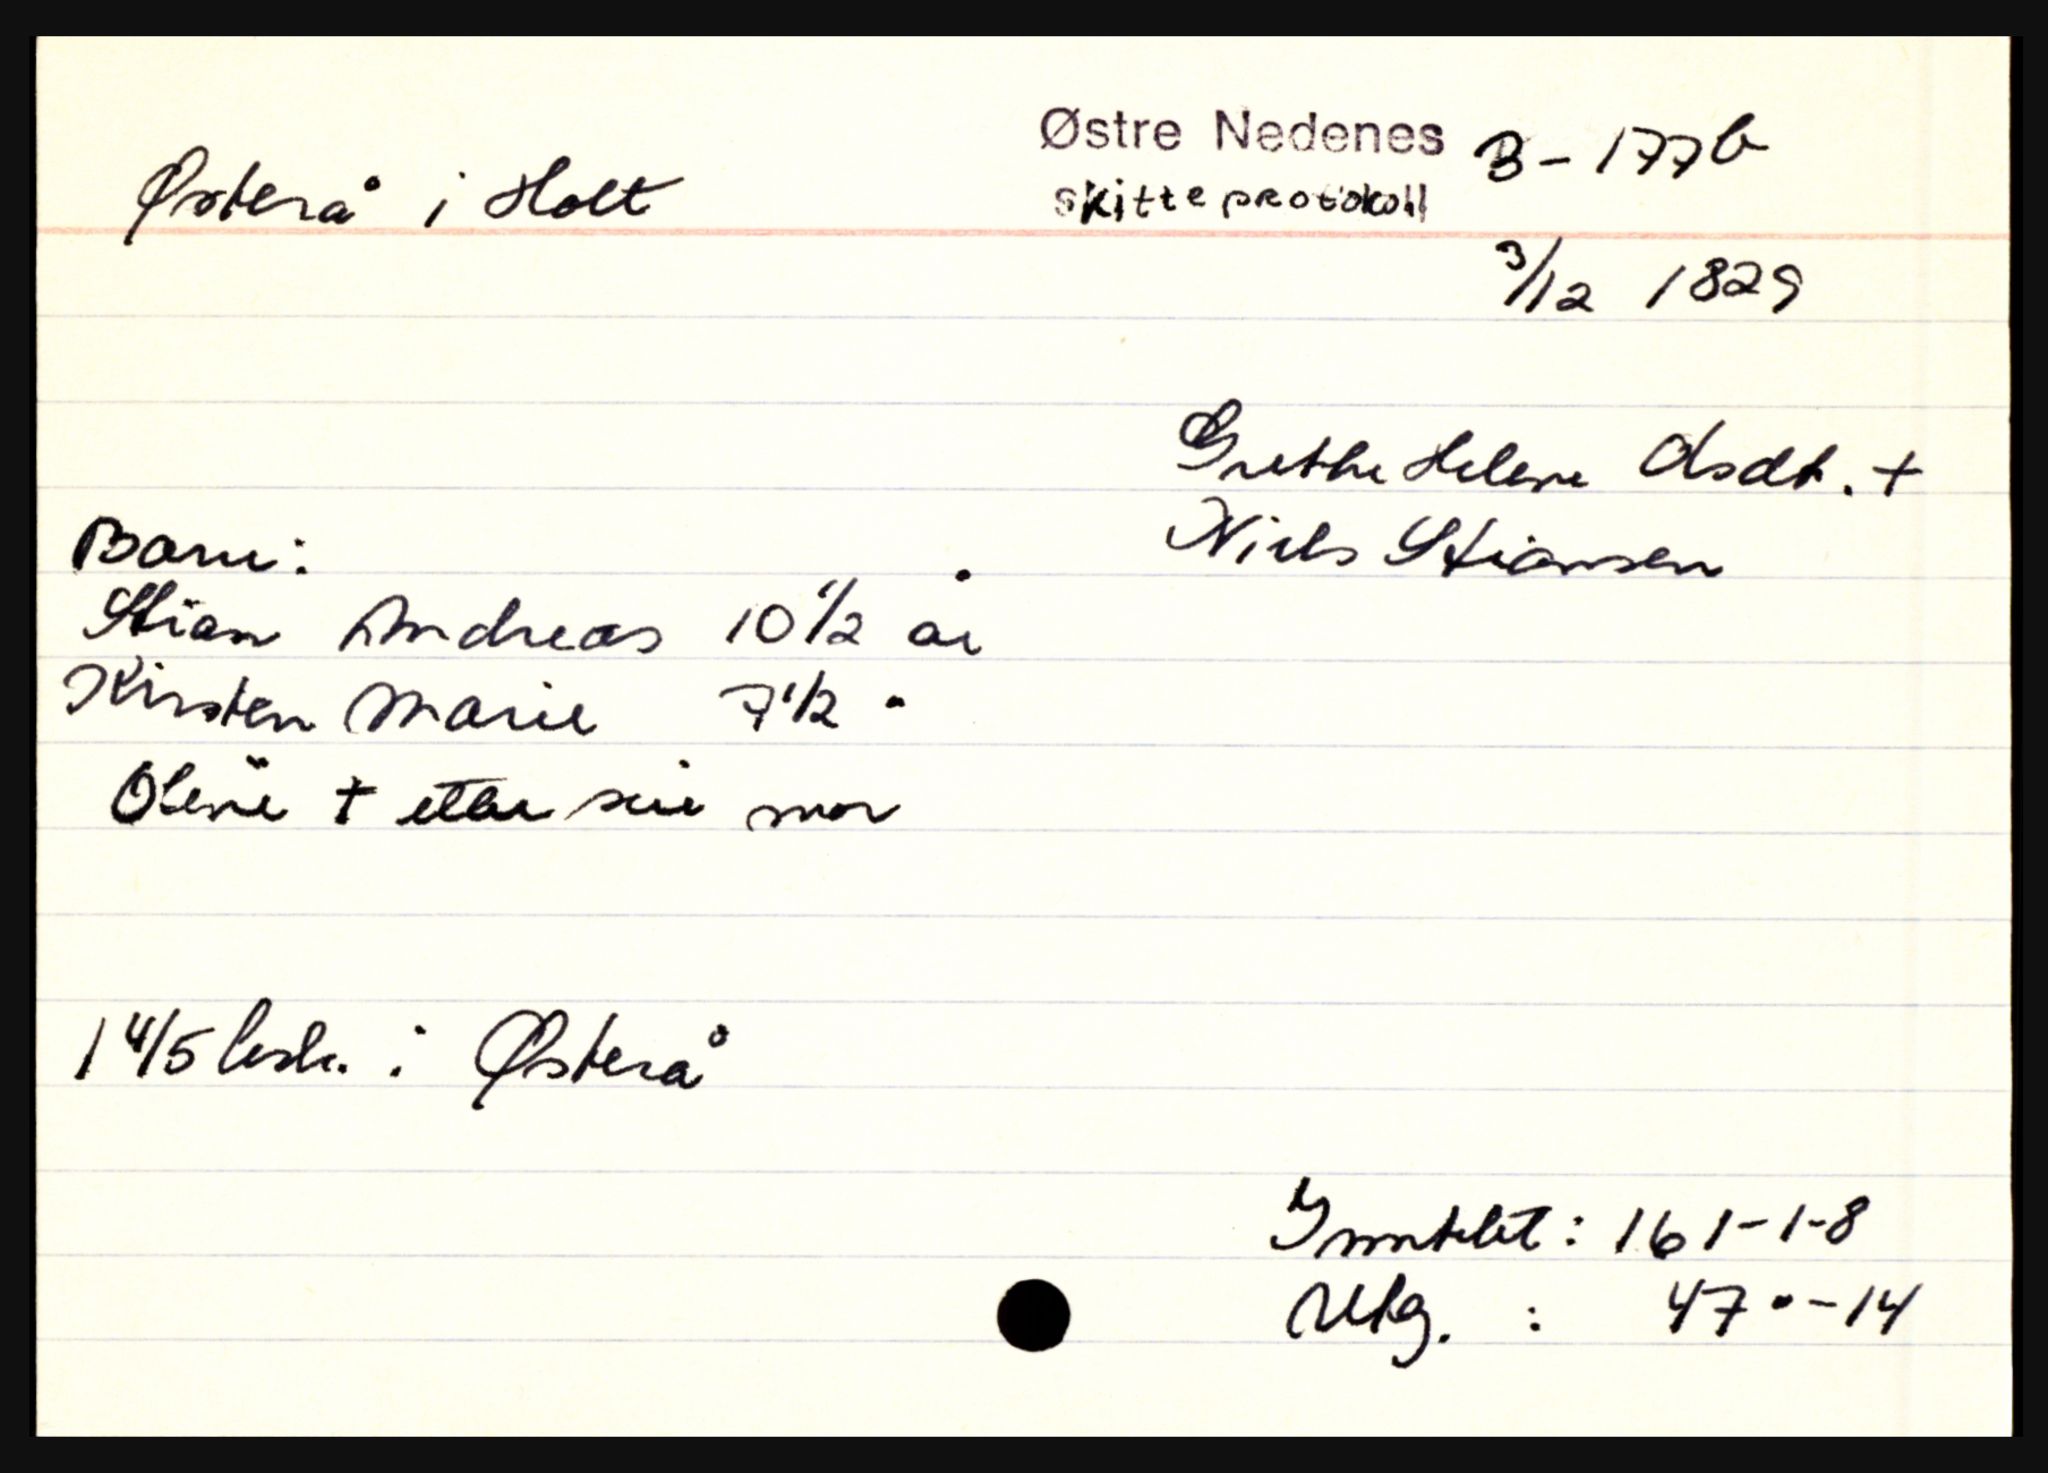 Østre Nedenes B - 177b
Østerå i Holt skifteprotokoll
3/12 1829
Grethe Helene Olsdt. +
Niels Stiansen
Barn:
Stian Andreas 10 1/2 år
Kirsten Marie 7 1/2 "
Olene + etter sin mor
1 4/5 besl. i Østerå
Inntekt: 161-1-8
Utg. : 47 " - 14